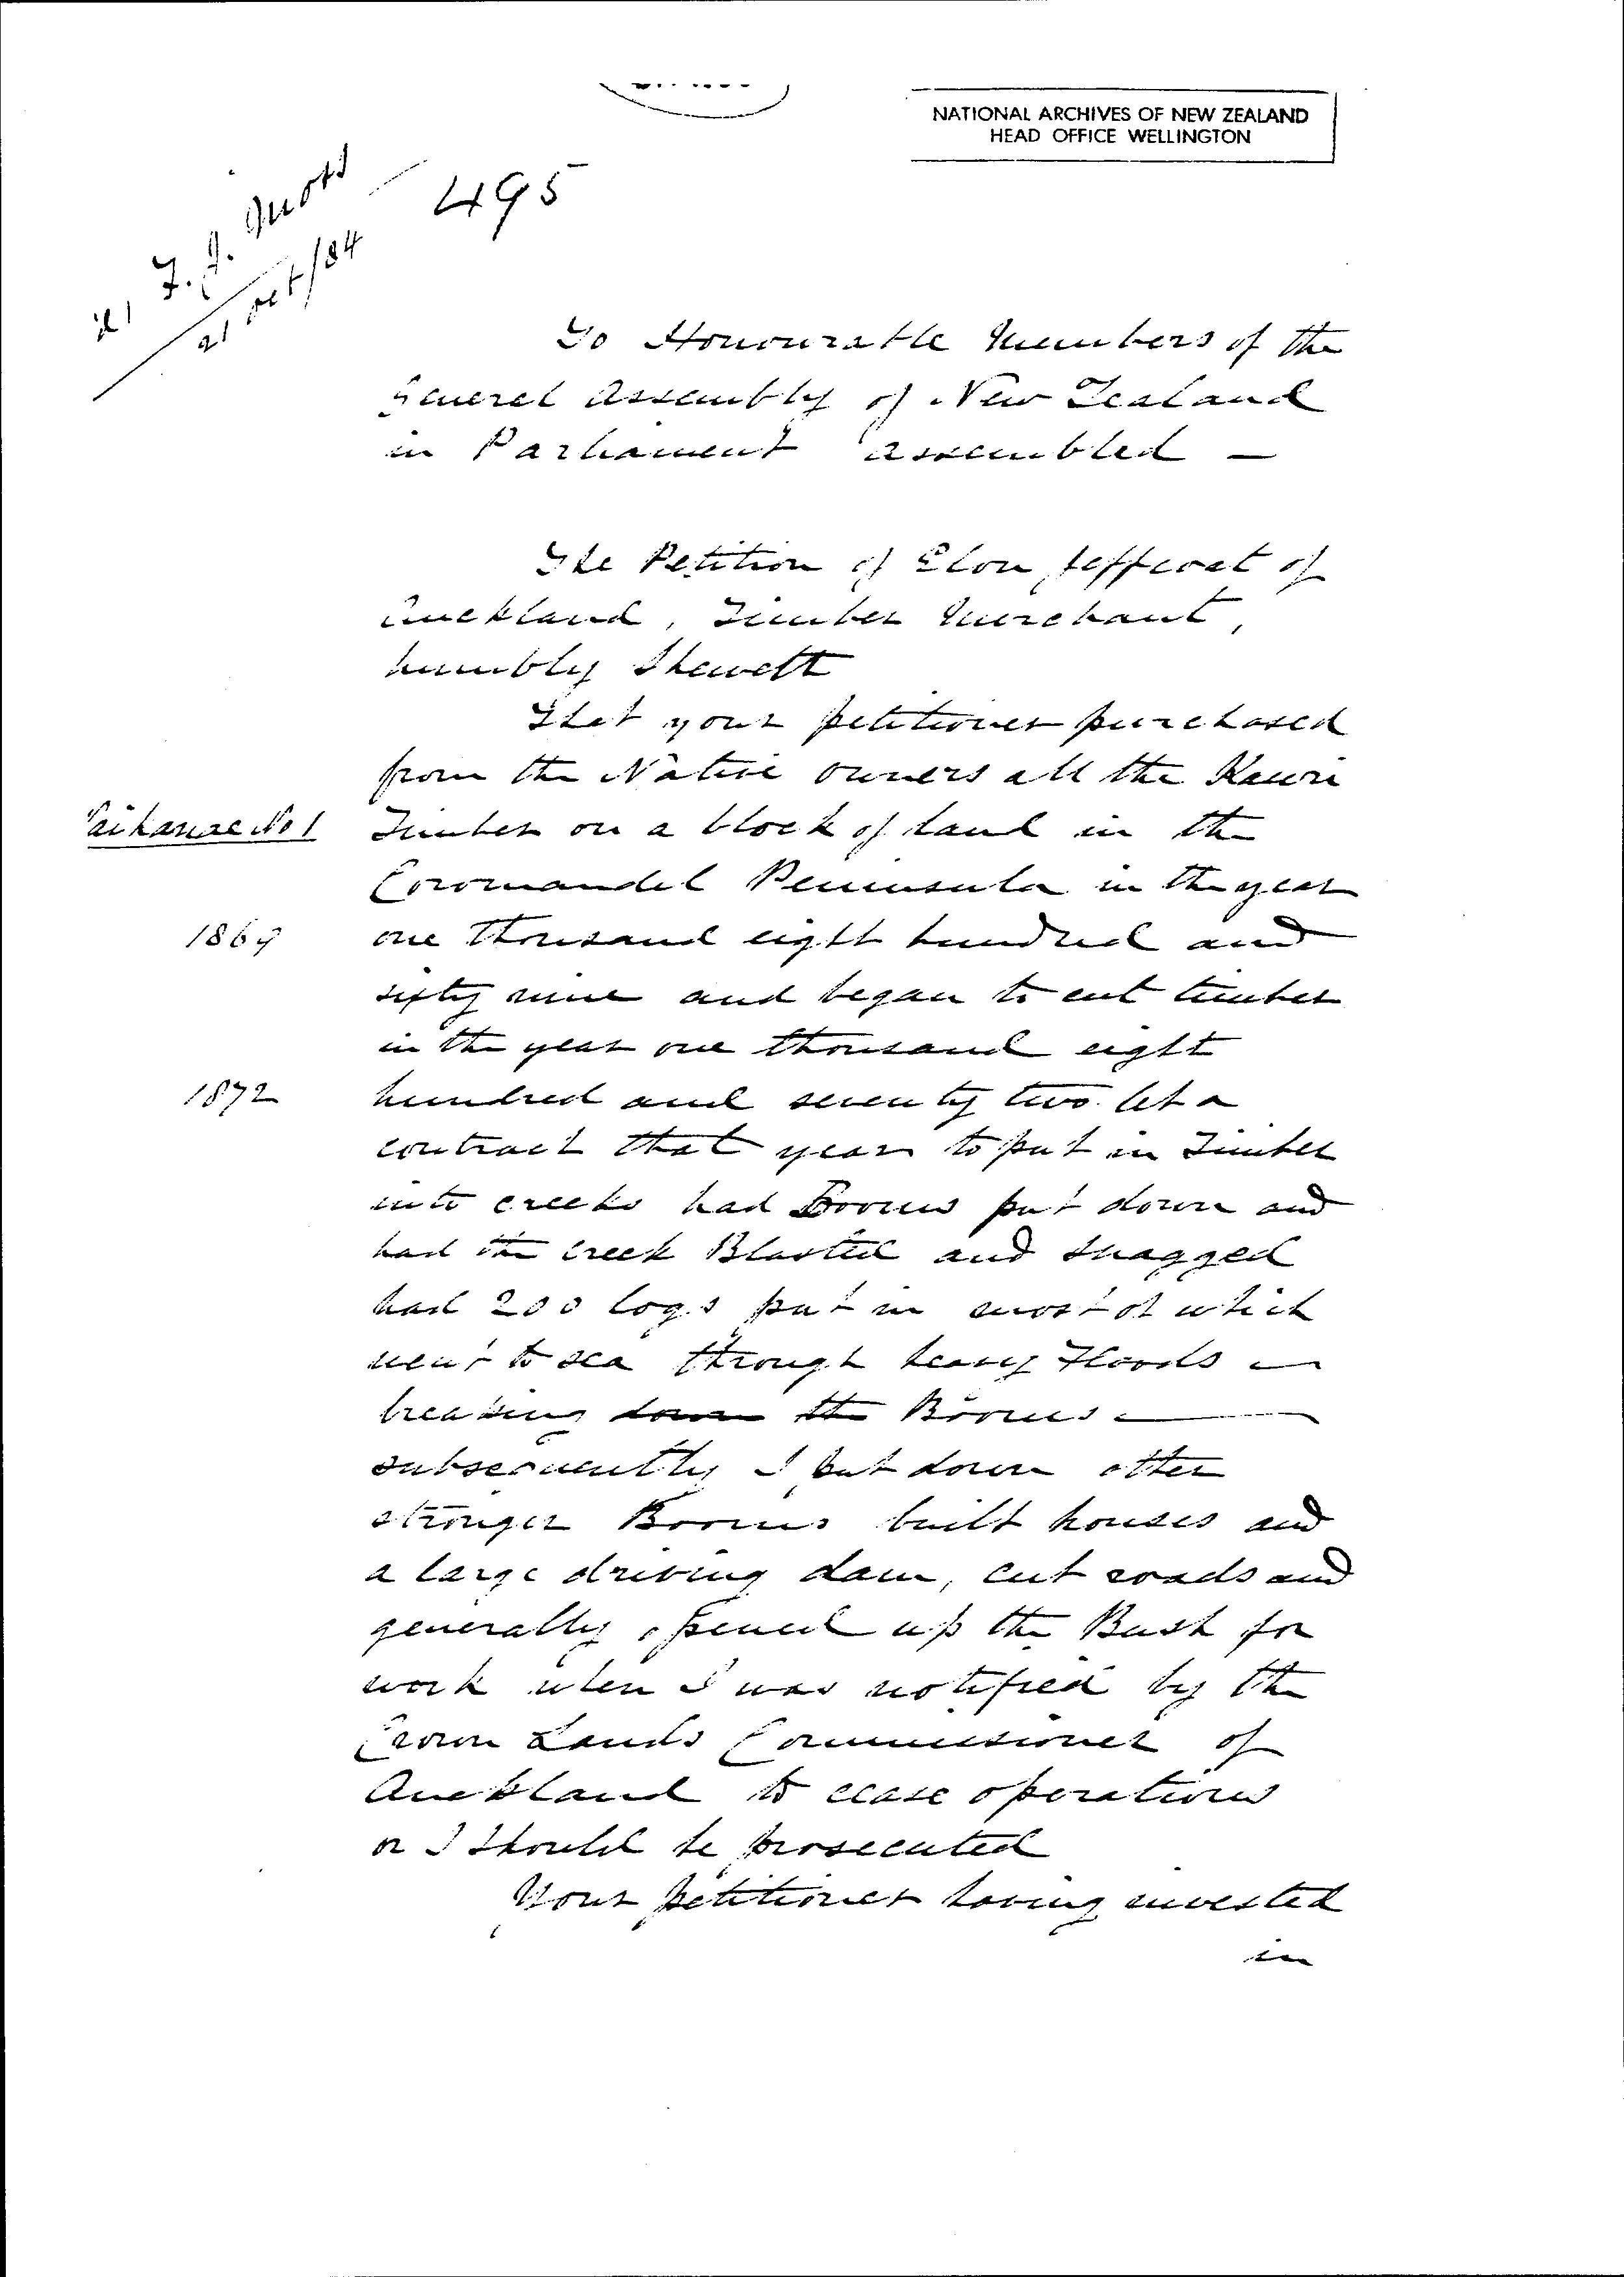 NATIONAL ARCHIVES OF NEW ZEALAND
HEAD OFFICE WELLINGTON
495
21 Oct/84
To Honourable Members of the
General Assembly of New Zealand
in Parliament assembled —
The Petition of Elon Jeffcoat of
Auckland, Timber Merchant,
humbly Sheweth
That your petitioner purchased
from the Native owners all the Kauri
Timber on a block of land in the
No 1
Coromandel Peninsula in the year
1869
one thousand eight hundred and
sixty nine and began to cut timber
in the year one thousand eight
1872
hundred and seventy two. let a
contract that year to put in Timber
into creeks had Booms put down and
had the creek Blasted and snagged
had 200 logs put in most of which
went to sea through heavy Floods —
breaking down the Booms —
subsequently I put down other
stronger Booms built houses and
a large driving dam, cut roads and
generally opened up the Bush for
work when I was notified by the
Crown Lands Commissioner of
Auckland to cease operations
or I should be prosecuted
Your petitioner having invested
in